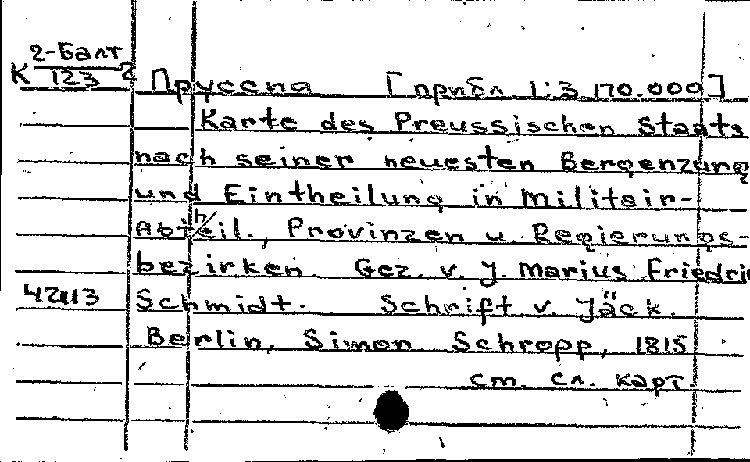 2-Балт
К 123 2
Пруссия [прибл. 1:3 170.000]
Karte des Preussischen Staats
nach seiner neuesten Bergenzung
und Eintheilung in Militair-
Abtheil., Provinzen u. Regierungs-
bezirken. Gez. v. J. Marius Friedric
42413 Schmidt. Schrift v. Jäck.
Berlin, Simon Schropp, 1815
см. сл. карт.